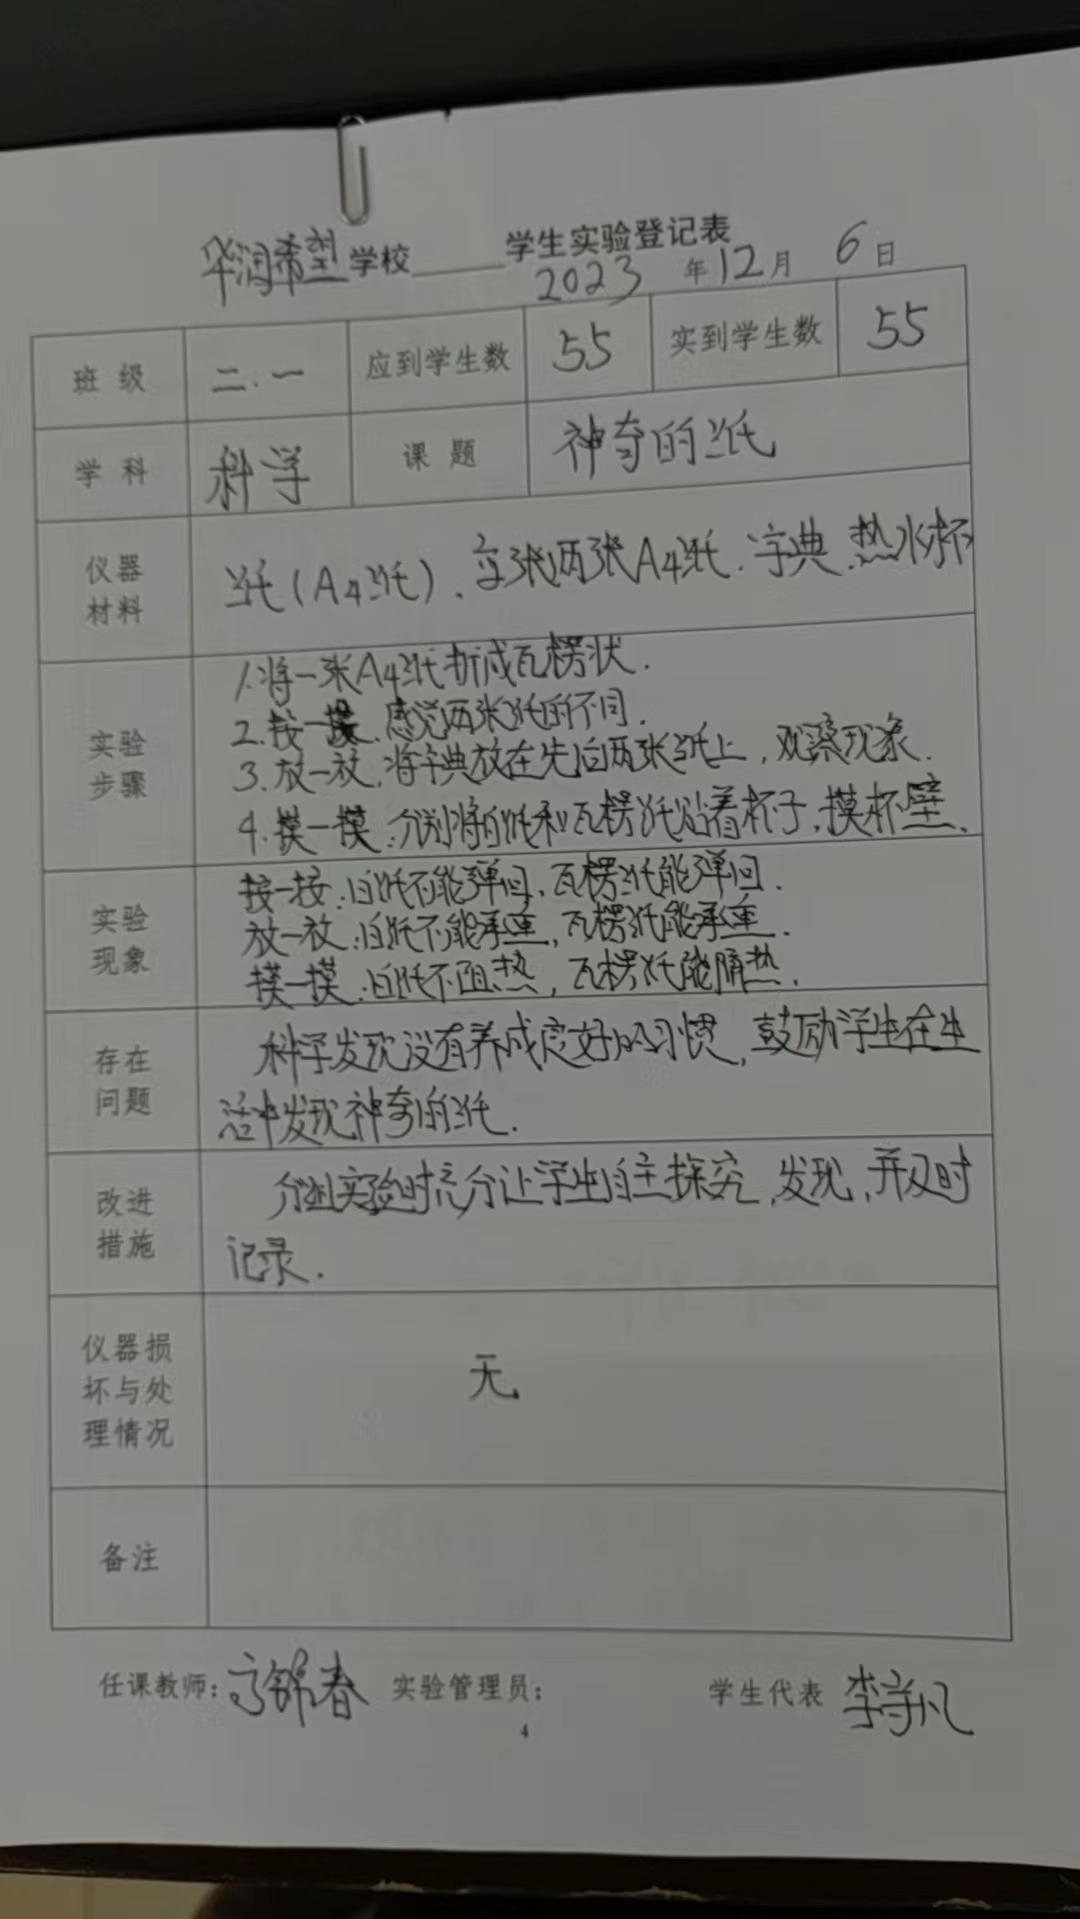 华润希望学校 学生实验登记表
2023 年 12 月 6 日
班 级 二.一 应到学生数 55 实到学生数 55
学 科 科学 课 题 神奇的纸
仪器材料 纸(A4纸)、两张A4纸、字典、热水杯
实验步骤 1.将一张A4纸折成瓦楞状.
2.按一摸.感觉两张纸的不同.
3.放一放,将字典放在先后两张纸上,观察现象.
4.摸一摸:分别将白纸和瓦楞纸贴着杯子,摸杯壁.
实验现象 按一按:白纸不能弹回,瓦楞纸能弹回.
放一放:白纸不能承重,瓦楞纸能承重.
摸一摸:白纸不阻热,瓦楞纸能隔热.
存在问题 科学发现没有养成良好的习惯,鼓励学生在生
活中发现神奇的纸.
改进措施 分组实验时充分让学生自主探究,发现,并及时
记录.
仪器损坏与处理情况 无
备注
任课教师: 锦春 实验管理员: 学生代表 李 凡
4